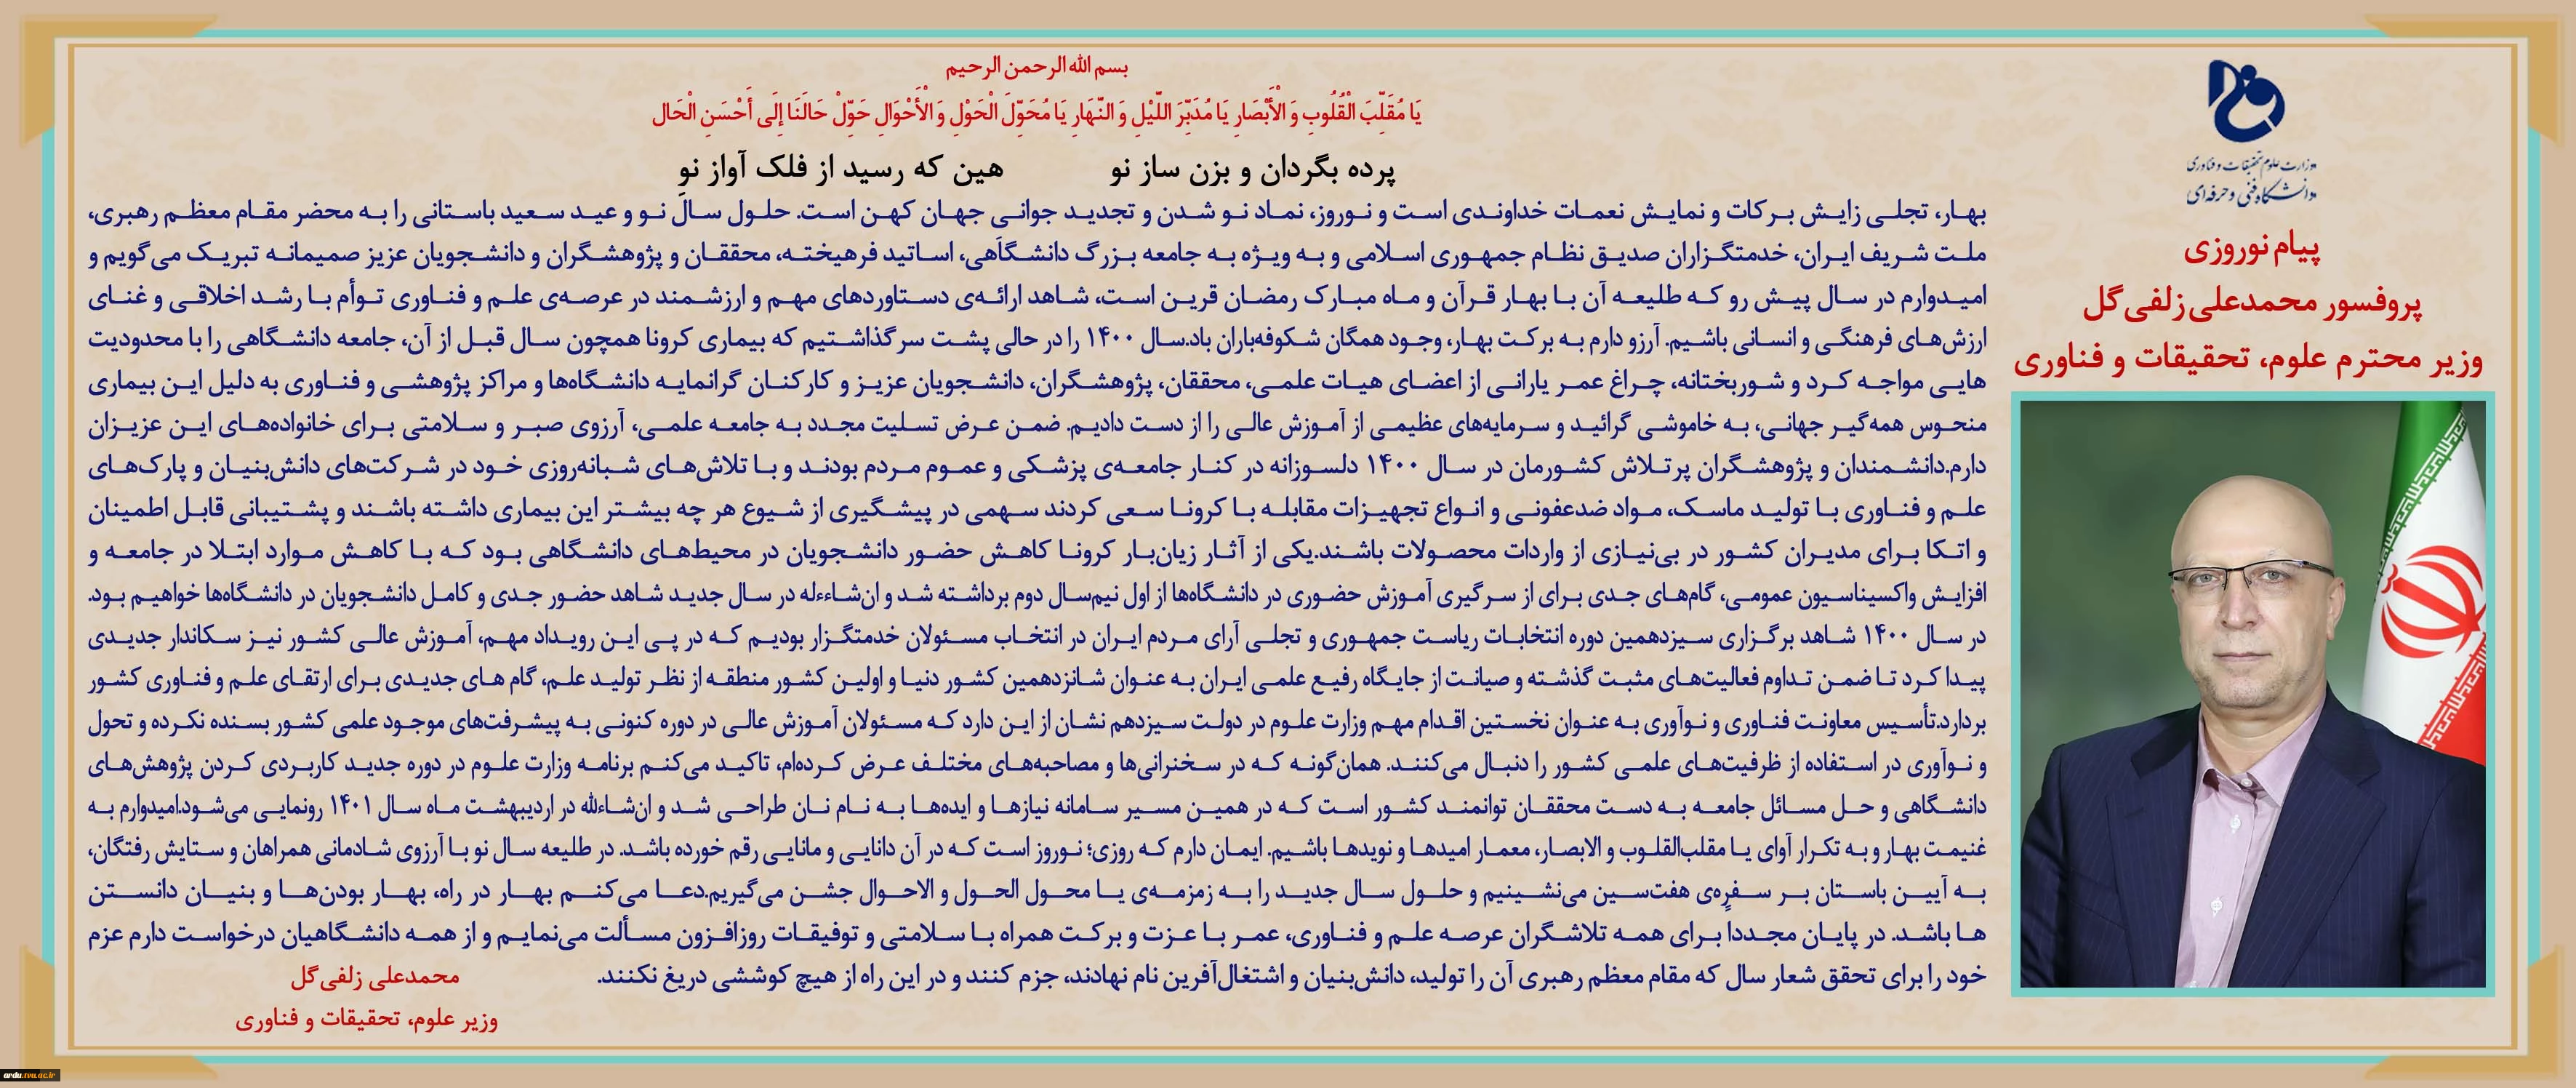 بسم الله الرحمن الرحیم
یَا مُقَلِّبَ الْقُلُوبِ وَ الْأَبْصَارِ یَا مُدَبِّرَ اللَّیْلِ وَ النَّهَارِ یَا مُحَوِّلَ الْحَوْلِ وَ الْأَحْوَالِ حَوِّلْ حَالَنَا إِلَى أَحْسَنِ الْحَال
پرده بگردان و بزن ساز نو هین که رسید از فلک آواز نو
بهار، تجلی زایش برکات و نمایش نعمات خداوندی است و نوروز، نماد نو شدن و تجدید جوانی جهان کهن است. حلول سال نو و عید سعید باستانی را به محضر مقام معظم رهبری،
ملت شریف ایران، خدمتگزاران صدیق نظام جمهوری اسلامی و به ویژه به جامعه بزرگ دانشگاهی، اساتید فرهیخته، محققان و پژوهشگران و دانشجویان عزیز صمیمانه تبریک می‌گویم و
امیدوارم در سال پیش رو که طلیعه آن با بهار قرآن و ماه مبارک رمضان قرین است، شاهد ارائه‌ی دستاوردهای مهم و ارزشمند در عرصه‌ی علم و فناوری توأم با رشد اخلاقی و غنای
ارزش‌های فرهنگی و انسانی باشیم. آرزو دارم به برکت بهار، وجود همگان شکوفه‌باران باد.سال ۱۴۰۰ را در حالی پشت سر گذاشتیم که بیماری کرونا همچون سال قبل از آن، جامعه دانشگاهی را با محدودیت
هایی مواجه کرد و شوربختانه، چراغ عمر یارانی از اعضای هیات علمی، محققان، پژوهشگران، دانشجویان عزیز و کارکنان گرانمایه دانشگاه‌ها و مراکز پژوهشی و فناوری به دلیل این بیماری
منحوس همه‌گیر جهانی، به خاموشی گرائید و سرمایه‌های عظیمی از آموزش عالی را از دست دادیم. ضمن عرض تسلیت مجدد به جامعه علمی، آرزوی صبر و سلامتی برای خانواده‌های این عزیزان
دارم.دانشمندان و پژوهشگران پرتلاش کشورمان در سال ۱۴۰۰ دلسوزانه در کنار جامعه‌ی پزشکی و عموم مردم بودند و با تلاش‌های شبانه‌روزی خود در شرکت‌های دانش‌بنیان و پارک‌های
علم و فناوری با تولید ماسک، مواد ضدعفونی و انواع تجهیزات مقابله با کرونا سعی کردند سهمی در پیشگیری از شیوع هر چه بیشتر این بیماری داشته باشند و پشتیبانی قابل اطمینان
و اتکا برای مدیران کشور در بی‌نیازی از واردات محصولات باشند.یکی از آثار زیان‌بار کرونا کاهش حضور دانشجویان در محیط‌های دانشگاهی بود که با کاهش موارد ابتلا در جامعه و
افزایش واکسیناسیون عمومی، گام‌های جدی برای از سرگیری آموزش حضوری در دانشگاه‌ها از اول نیم‌سال دوم برداشته شد و ان‌شاءءله در سال جدید شاهد حضور جدی و کامل دانشجویان در دانشگاه‌ها خواهیم بود.
در سال ۱۴۰۰ شاهد برگزاری سیزدهمین دوره انتخابات ریاست جمهوری و تجلی آرای مردم ایران در انتخاب مسئولان خدمتگزار بودیم که در پی این رویداد مهم، آموزش عالی کشور نیز سکاندار جدیدی
پیدا کرد تا ضمن تداوم فعالیت‌های مثبت گذشته و صیانت از جایگاه رفیع علمی ایران به عنوان شانزدهمین کشور دنیا و اولین کشور منطقه از نظر تولید علم، گام های جدیدی برای ارتقای علم و فناوری کشور
بردارد.تأسیس معاونت فناوری و نوآوری به عنوان نخستین اقدام مهم وزارت علوم در دولت سیزدهم نشان از این دارد که مسئولان آموزش عالی در دوره کنونی به پیشرفت‌های موجود علمی کشور بسنده نکرده و تحول
و نوآوری در استفاده از ظرفیت‌های علمی کشور را دنبال می‌کنند. همان‌گونه که در سخنرانی‌ها و مصاحبه‌های مختلف عرض کرده‌ام، تاکید می‌کنم برنامه وزارت علوم در دوره جدید کاربردی کردن پژوهش‌های
دانشگاهی و حل مسائل جامعه به دست محققان توانمند کشور است که در همین مسیر سامانه نیازها و ایده‌ها به نام نان طراحی شد و ان‌شاءلله در اردیبهشت ماه سال ۱۴۰۱ رونمایی می‌شود.امیدوارم به
غنیمت بهار و به تکرار آوای یا مقلب‌القلوب و الابصار، معمار امیدها و نویدها باشیم. ایمان دارم که روزی؛ نوروز است که در آن دانایی و مانایی رقم خورده باشد. در طلیعه سال نو با آرزوی شادمانی همراهان و ستایش رفتگان،
به آیین باستان بر سفره‌ی هفت‌سین می‌نشینیم و حلول سال جدید را به زمزمه‌ی یا محول الحول و الاحوال جشن می‌گیریم.دعا می‌کنم بهار در راه، بهار بودن‌ها و بنیان دانستن
ها باشد. در پایان مجددا برای همه تلاشگران عرصه علم و فناوری، عمر با عزت و برکت همراه با سلامتی و توفیقات روزافزون مسألت می‌نمایم و از همه دانشگاهیان درخواست دارم عزم
خود را برای تحقق شعار سال که مقام معظم رهبری آن را تولید، دانش‌بنیان و اشتغال‌آفرین نام نهادند، جزم کنند و در این راه از هیچ کوششی دریغ نکنند.
محمدعلی زلفی‌گل
وزیر علوم، تحقیقات و فناوری
وزارت علوم تحقیقات و فناوری
دانشگاه فنی و حرفه‌ای
پیام نوروزی
پروفسور محمدعلی زلفی‌گل
وزیر محترم علوم، تحقیقات و فناوری
ardu.tvu.ac.ir